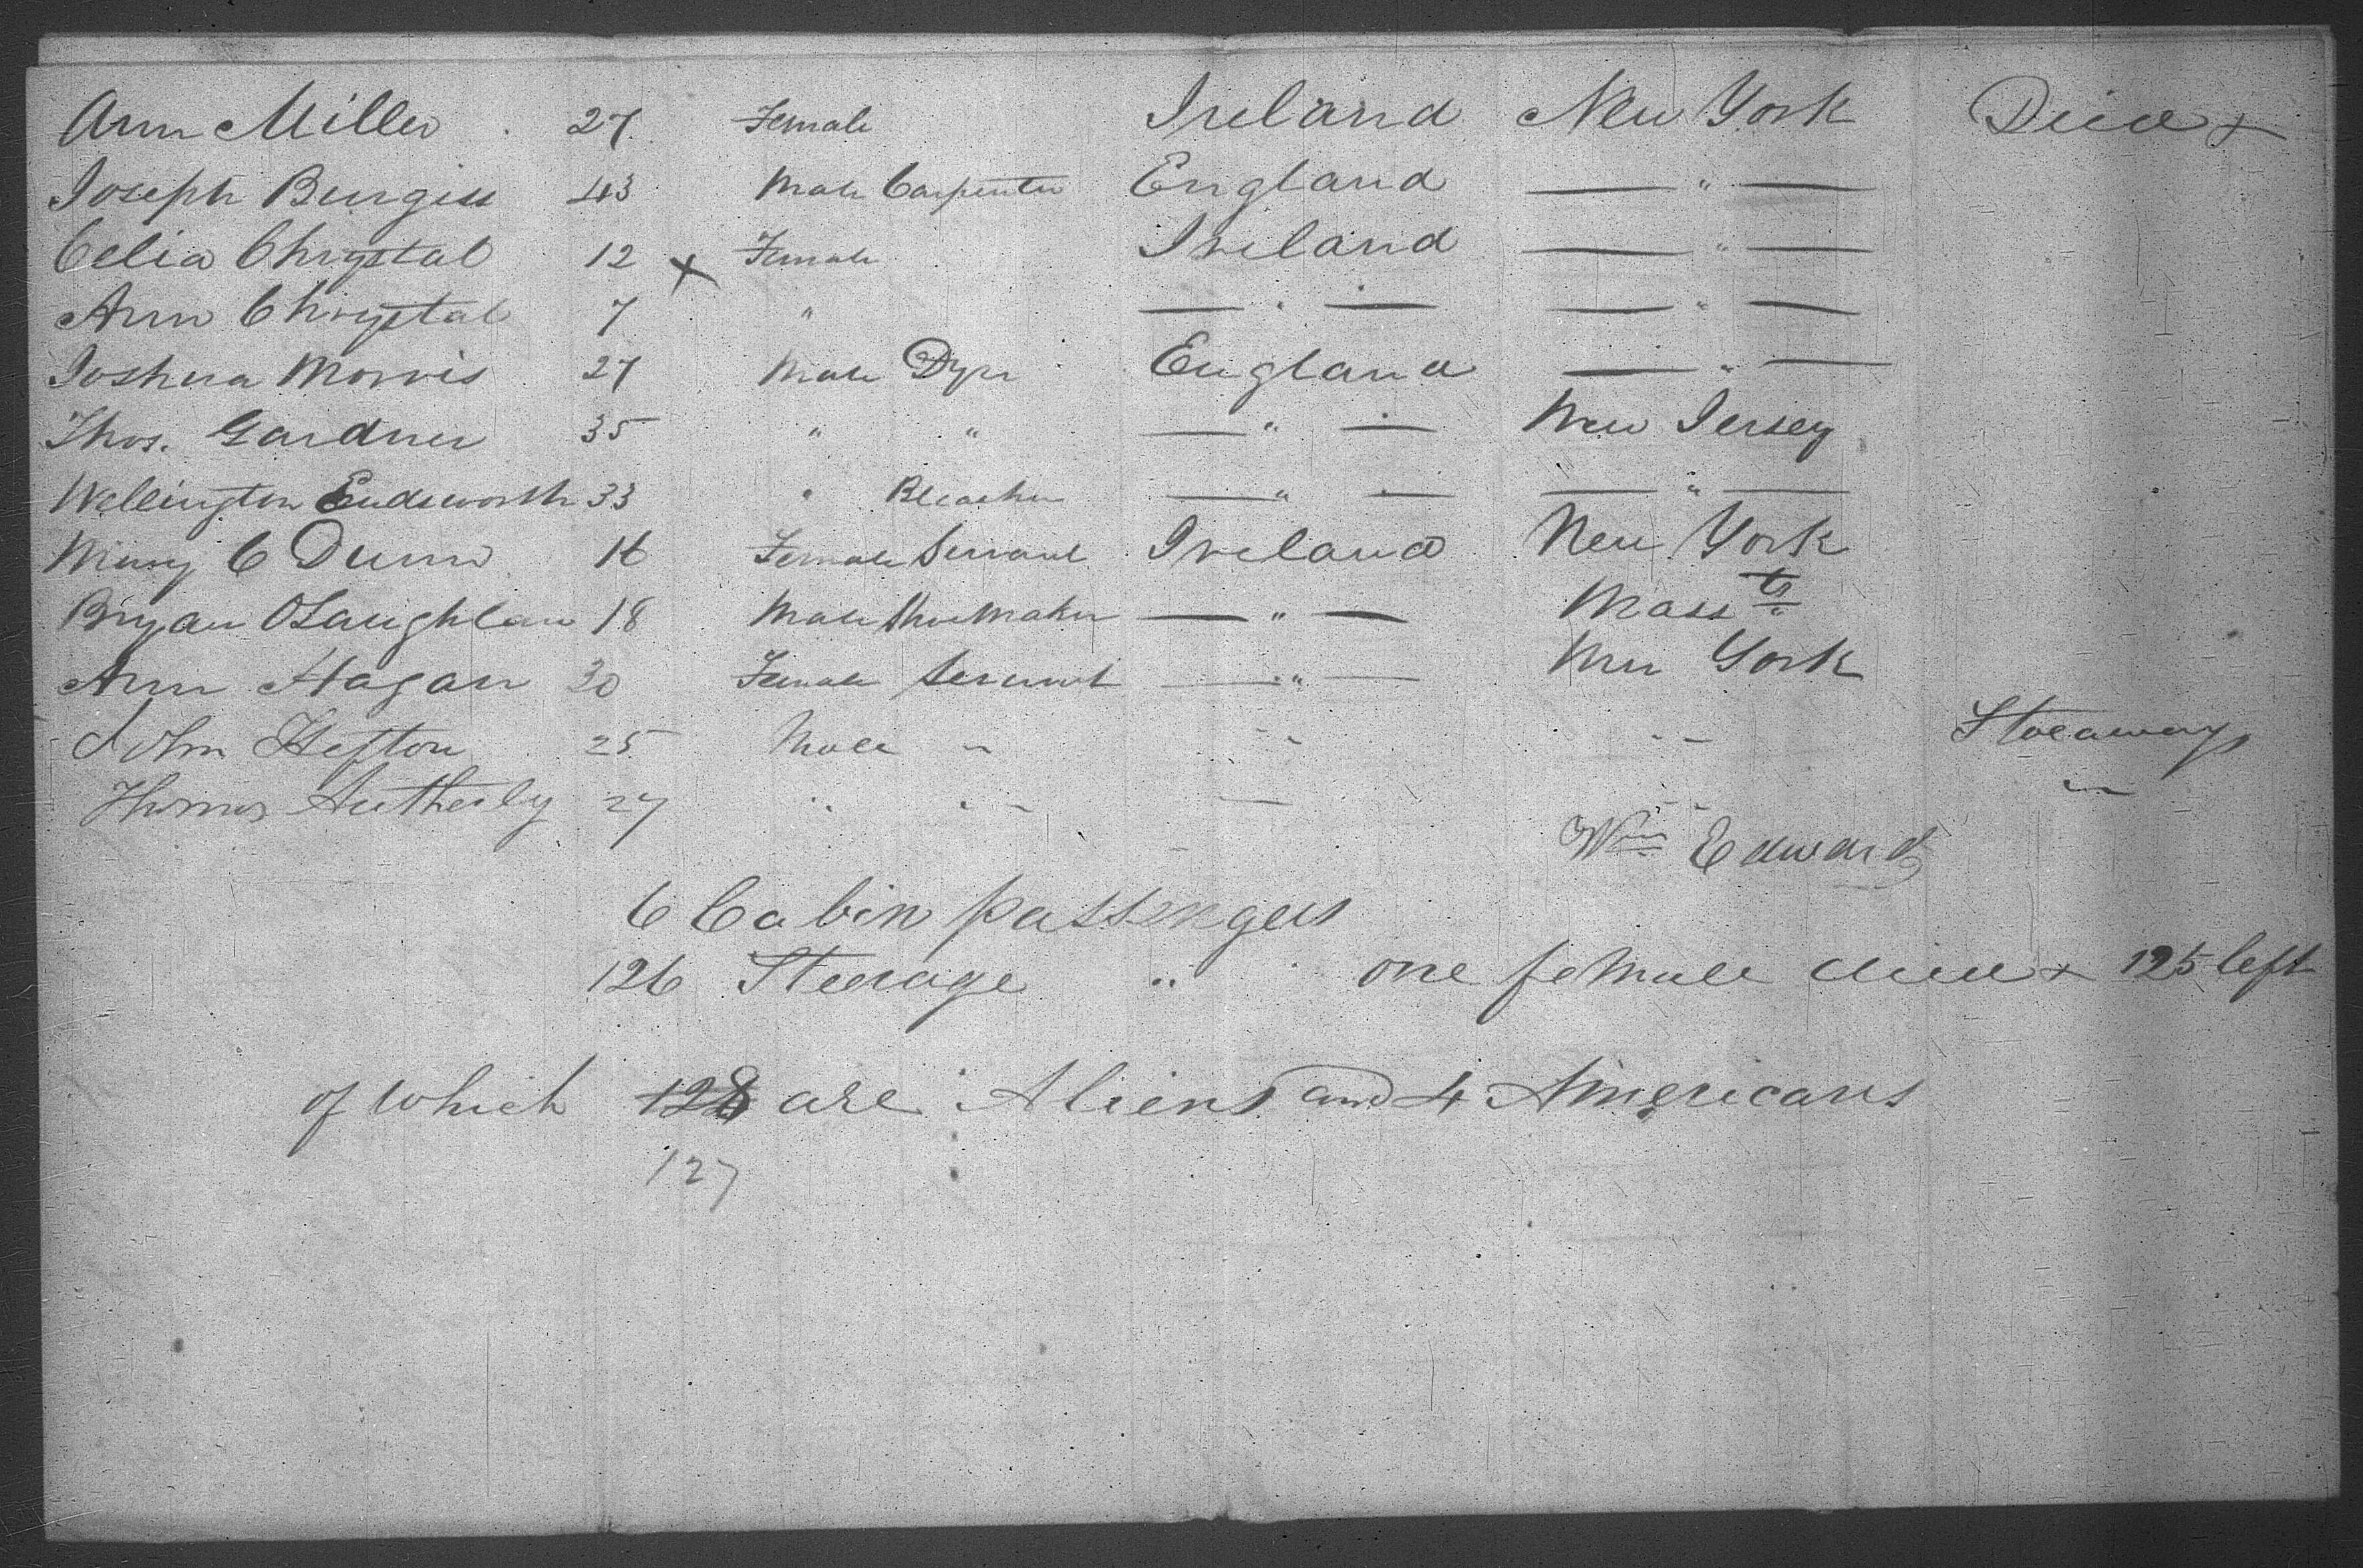 Ann Miller 27 Female Ireland New York Died +
Joseph Burgiss 43 Male Carpenter England — " —
Celia Chrystal 12 x Female Ireland — " —
Ann Chrystal 7 " — " — — " —
Joshua Morris 27 Male Dyer England — " —
Thos. Gardner 35 " " — " — New Jersey
Wellington Endsworth 33 " Bleacher — " — — " —
Mary C Dunn 16 Female Servant Ireland New York
Bryan OLaughlan 18 Male Shoemaker — " — Mass ts
Ann Hagan 30 Female Servant — " — New York
John Hefton 25 Male " " " Stoeaway
Thomas 27 " " " " "
Wm Edwards
6 Cabin passengers
126 Steerage " one female died + 125 left
of which 128 are Aliens and 4 Americans
127